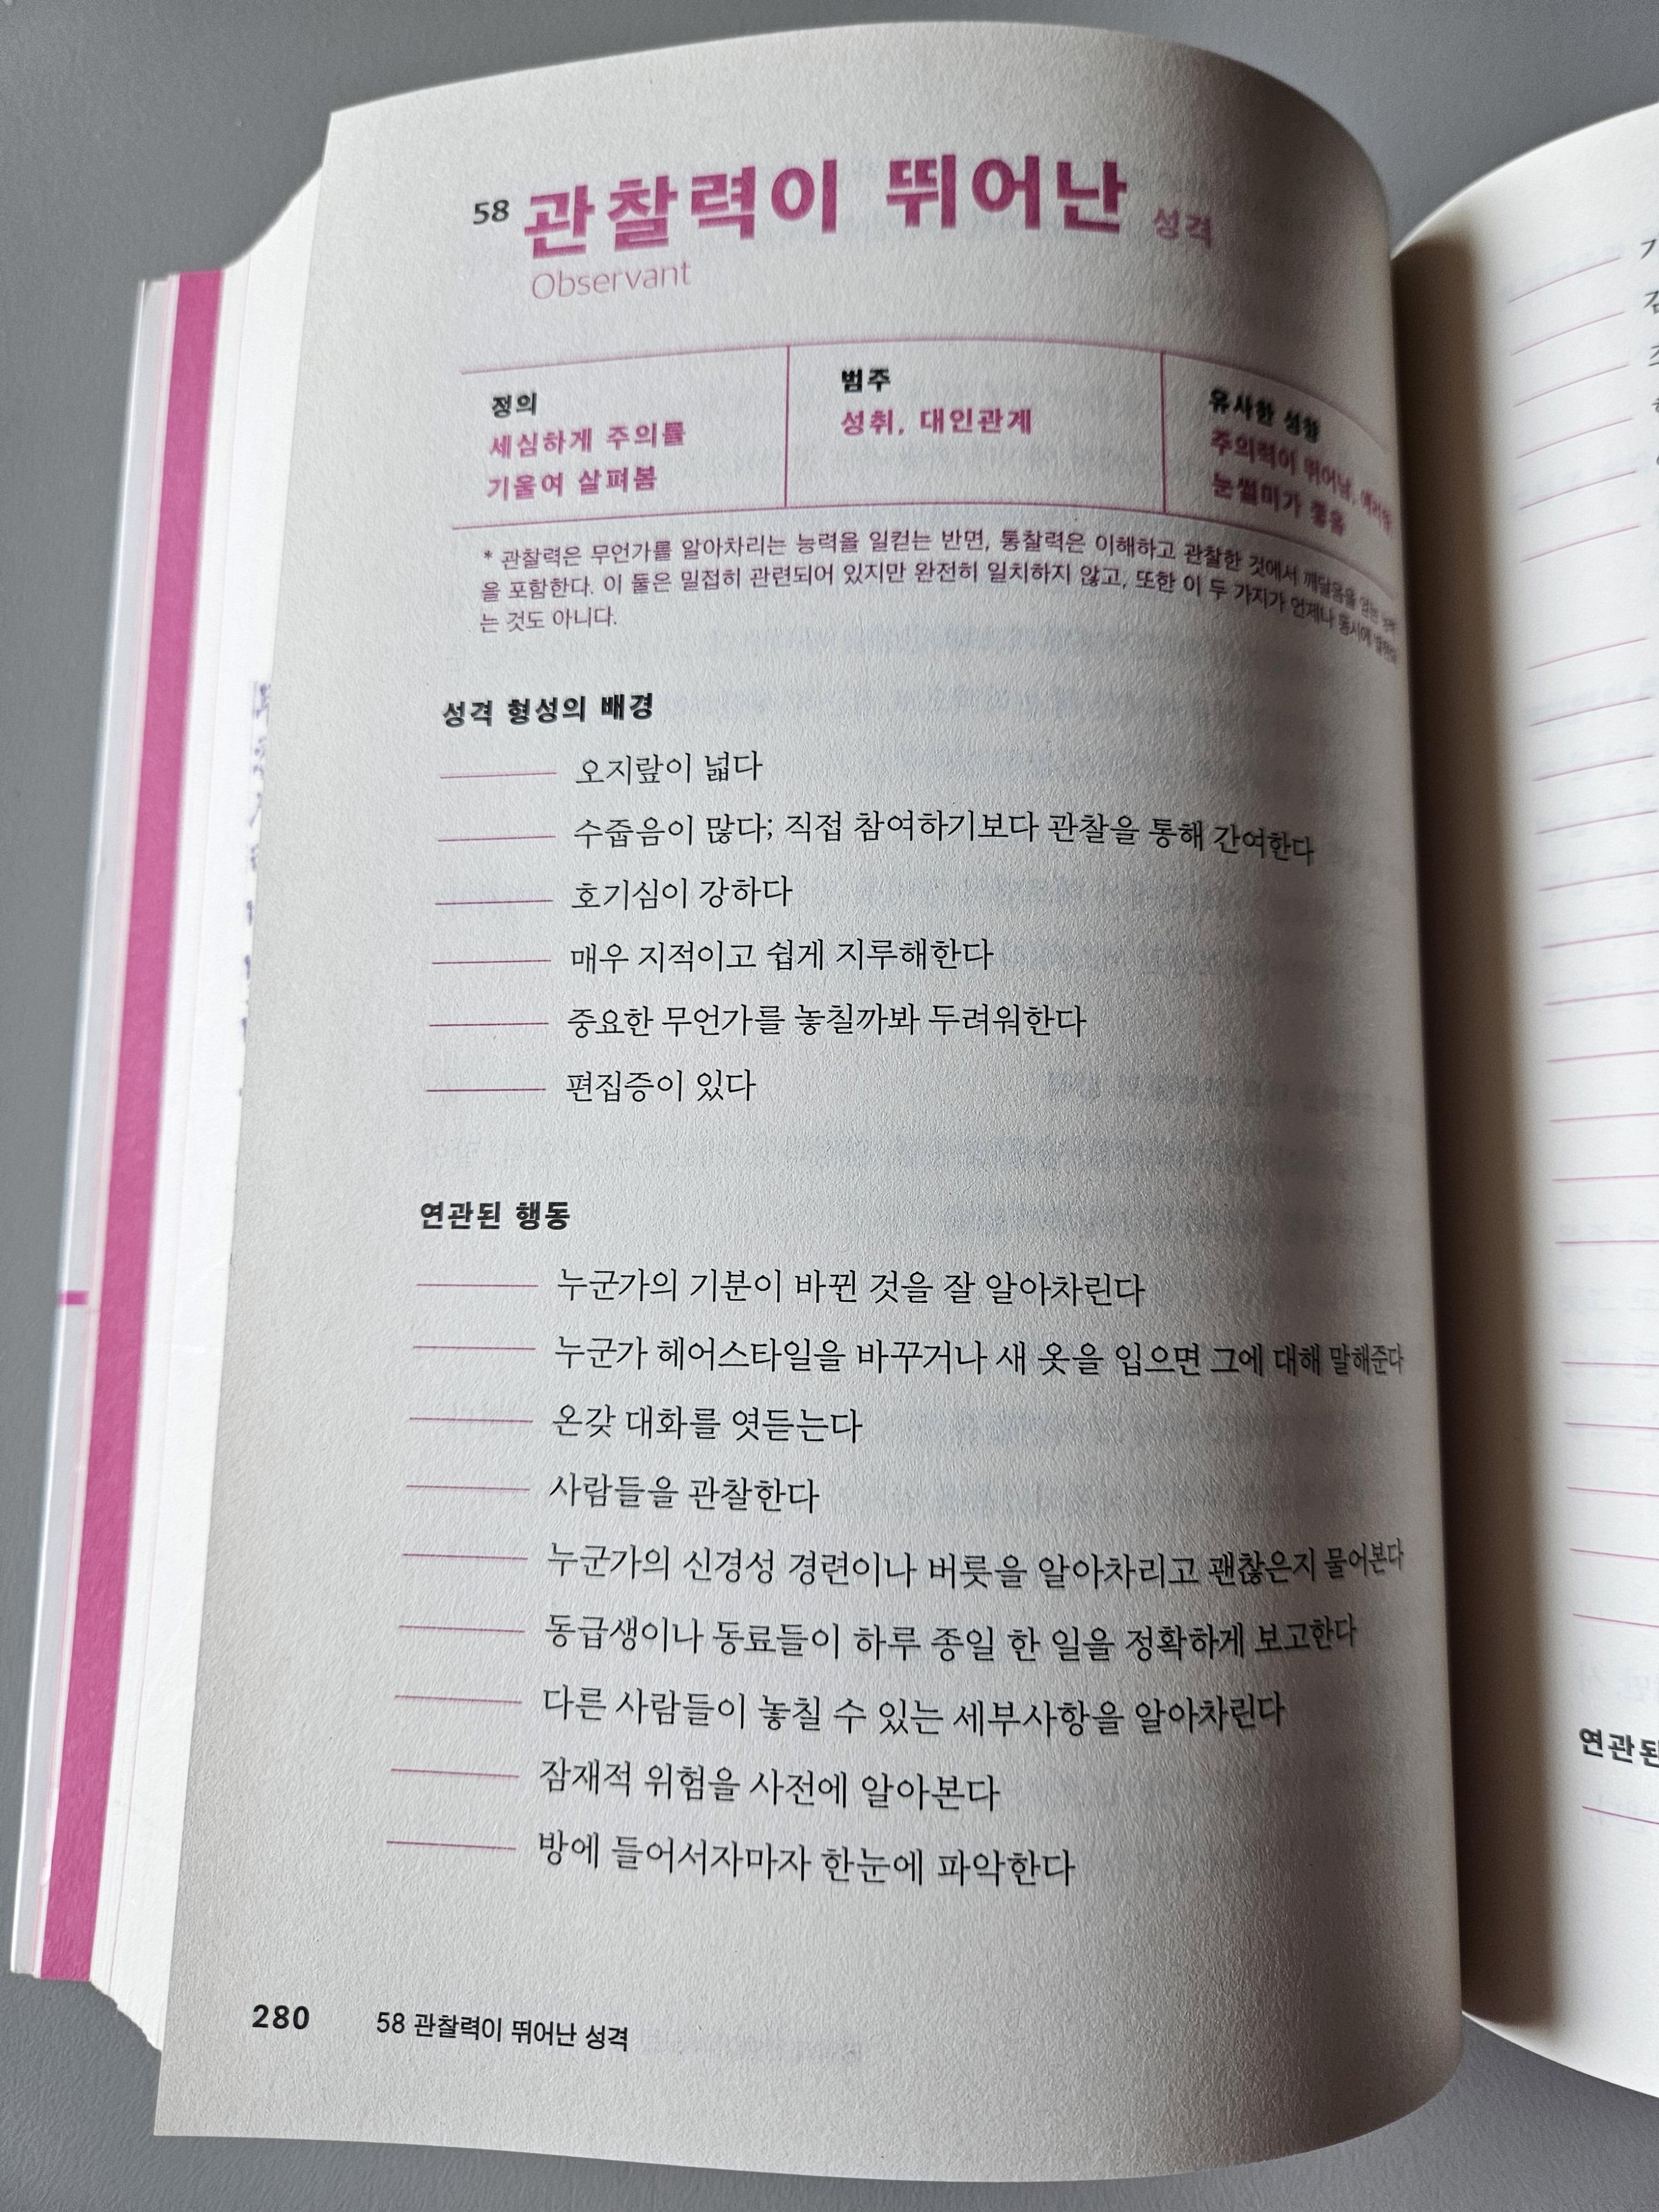 58 관찰력이 뛰어난 성격
Observant
정의
세심하게 주의를
기울여 살펴봄
범주
성취, 대인관계
유사한 성향
주의력이 뛰어남, 예리함,
눈썰미가 좋음
* 관찰력은 무언가를 알아차리는 능력을 일컫는 반면, 통찰력은 이해하고 관찰한 것에서 깨달음을 얻는
을 포함한다. 이 둘은 밀접히 관련되어 있지만 완전히 일치하지 않고, 또한 이 두 가지가 언제나 동시에
는 것도 아니다.
성격 형성의 배경
오지랖이 넓다
수줍음이 많다; 직접 참여하기보다 관찰을 통해 간여한다
호기심이 강하다
매우 지적이고 쉽게 지루해한다
중요한 무언가를 놓칠까봐 두려워한다
편집증이 있다
연관된 행동
누군가의 기분이 바뀐 것을 잘 알아차린다
누군가 헤어스타일을 바꾸거나 새 옷을 입으면 그에 대해 말해준다
온갖 대화를 엿듣는다
사람들을 관찰한다
누군가의 신경성 경련이나 버릇을 알아차리고 괜찮은지 물어본다
동급생이나 동료들이 하루 종일 한 일을 정확하게 보고한다
다른 사람들이 놓칠 수 있는 세부사항을 알아차린다
잠재적 위험을 사전에 알아본다
방에 들어서자마자 한눈에 파악한다
280 58 관찰력이 뛰어난 성격
연관된